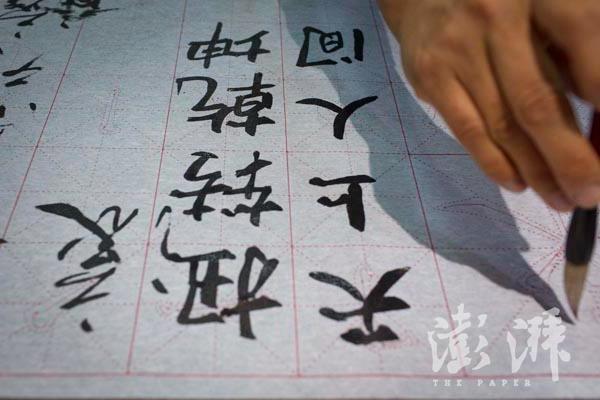 扭转乾坤
天上人间
澎湃
THE PAPER